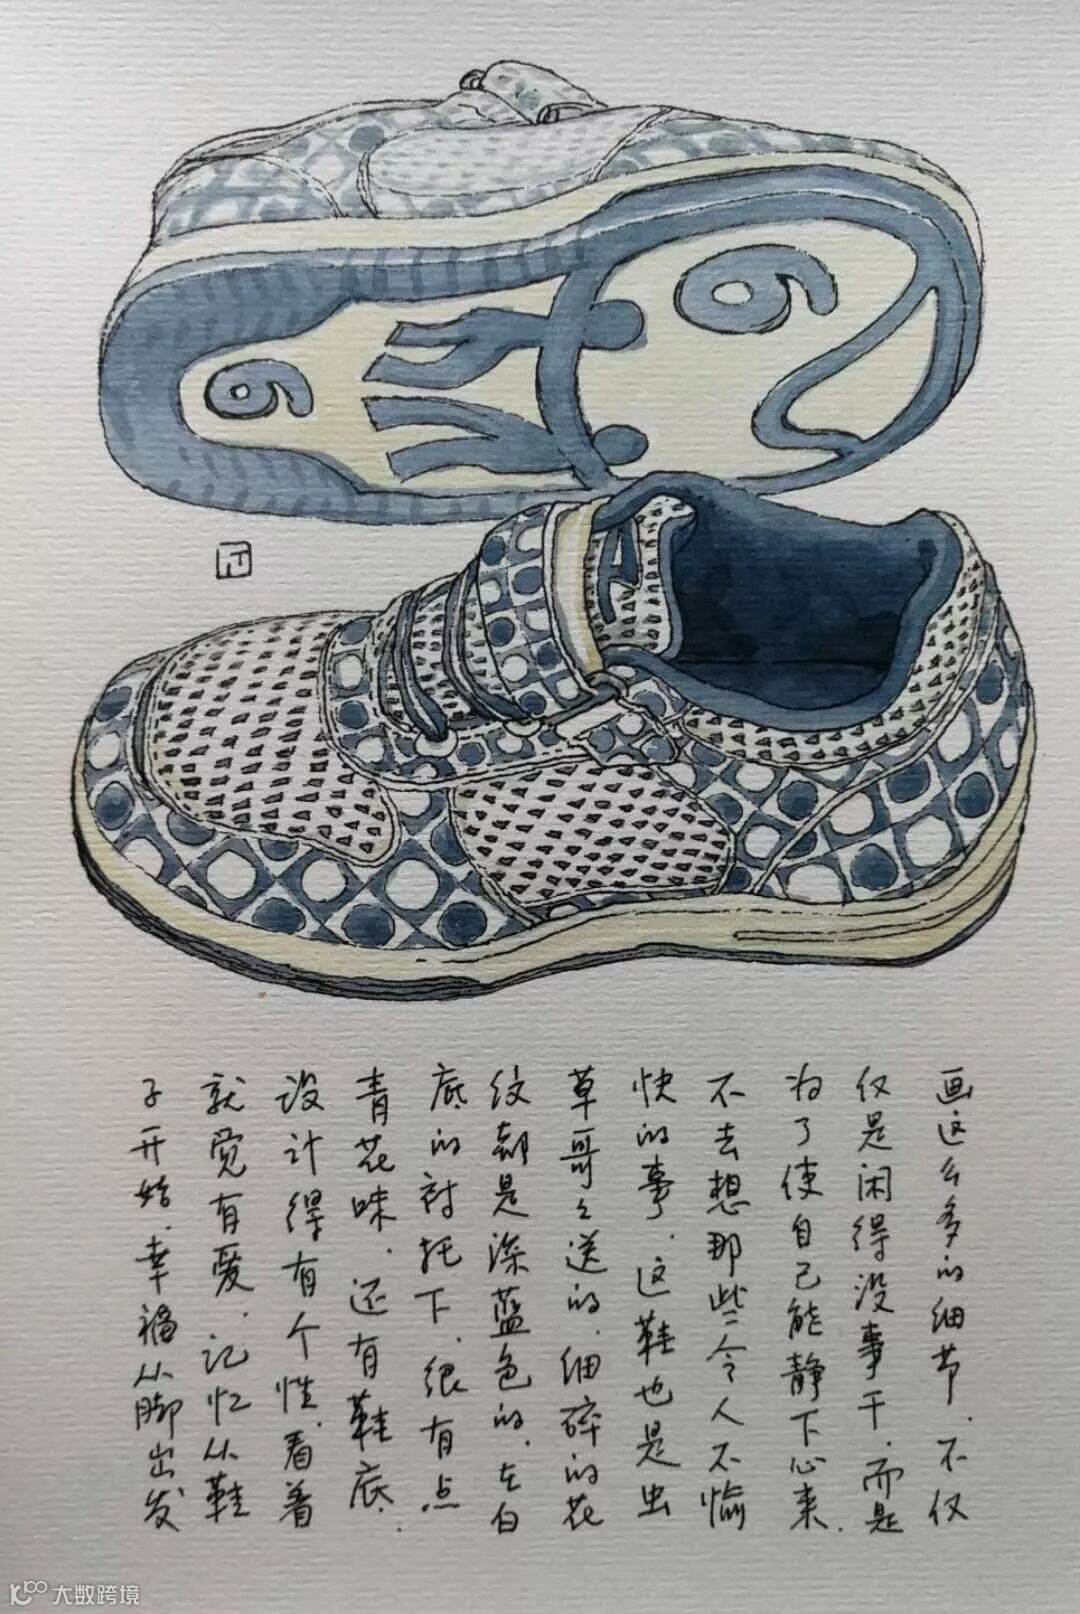 6
6
画这么多的细节.不仅
仅是闲得没事干.而是
为了使自己能静下心来.
不去想那些令人不愉
快的事.这鞋也是虫
草哥々送的.细碎的花
纹都是深蓝色的.在白
底的衬托下.很有点
青花味.还有鞋底.
设计得有个性.看着
就觉有爱.记忆从鞋
子开始.幸福从脚出发
大数跨境